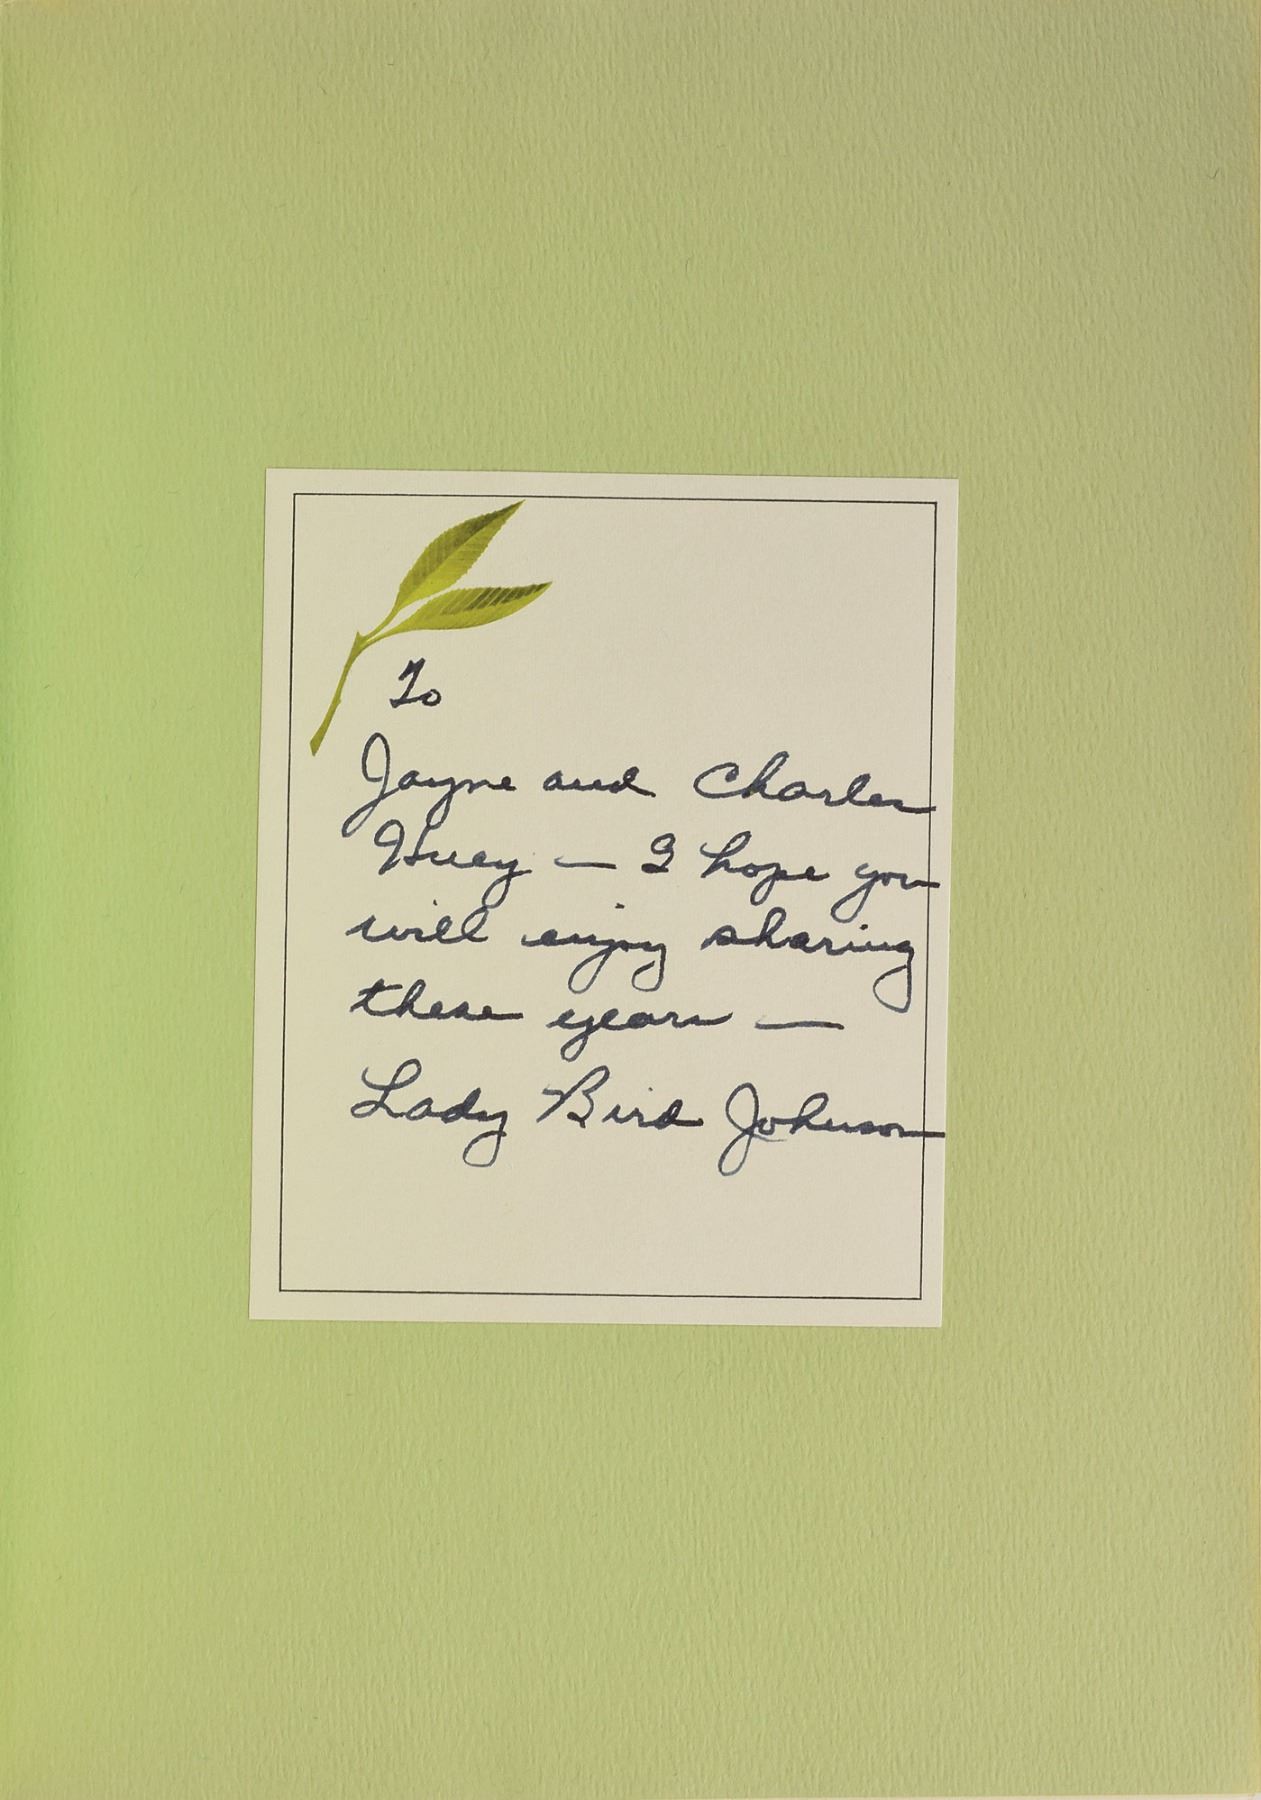 To
Jayne and Charles
Huey — I hope you
will enjoy sharing
these years —
Lady Bird Johnson